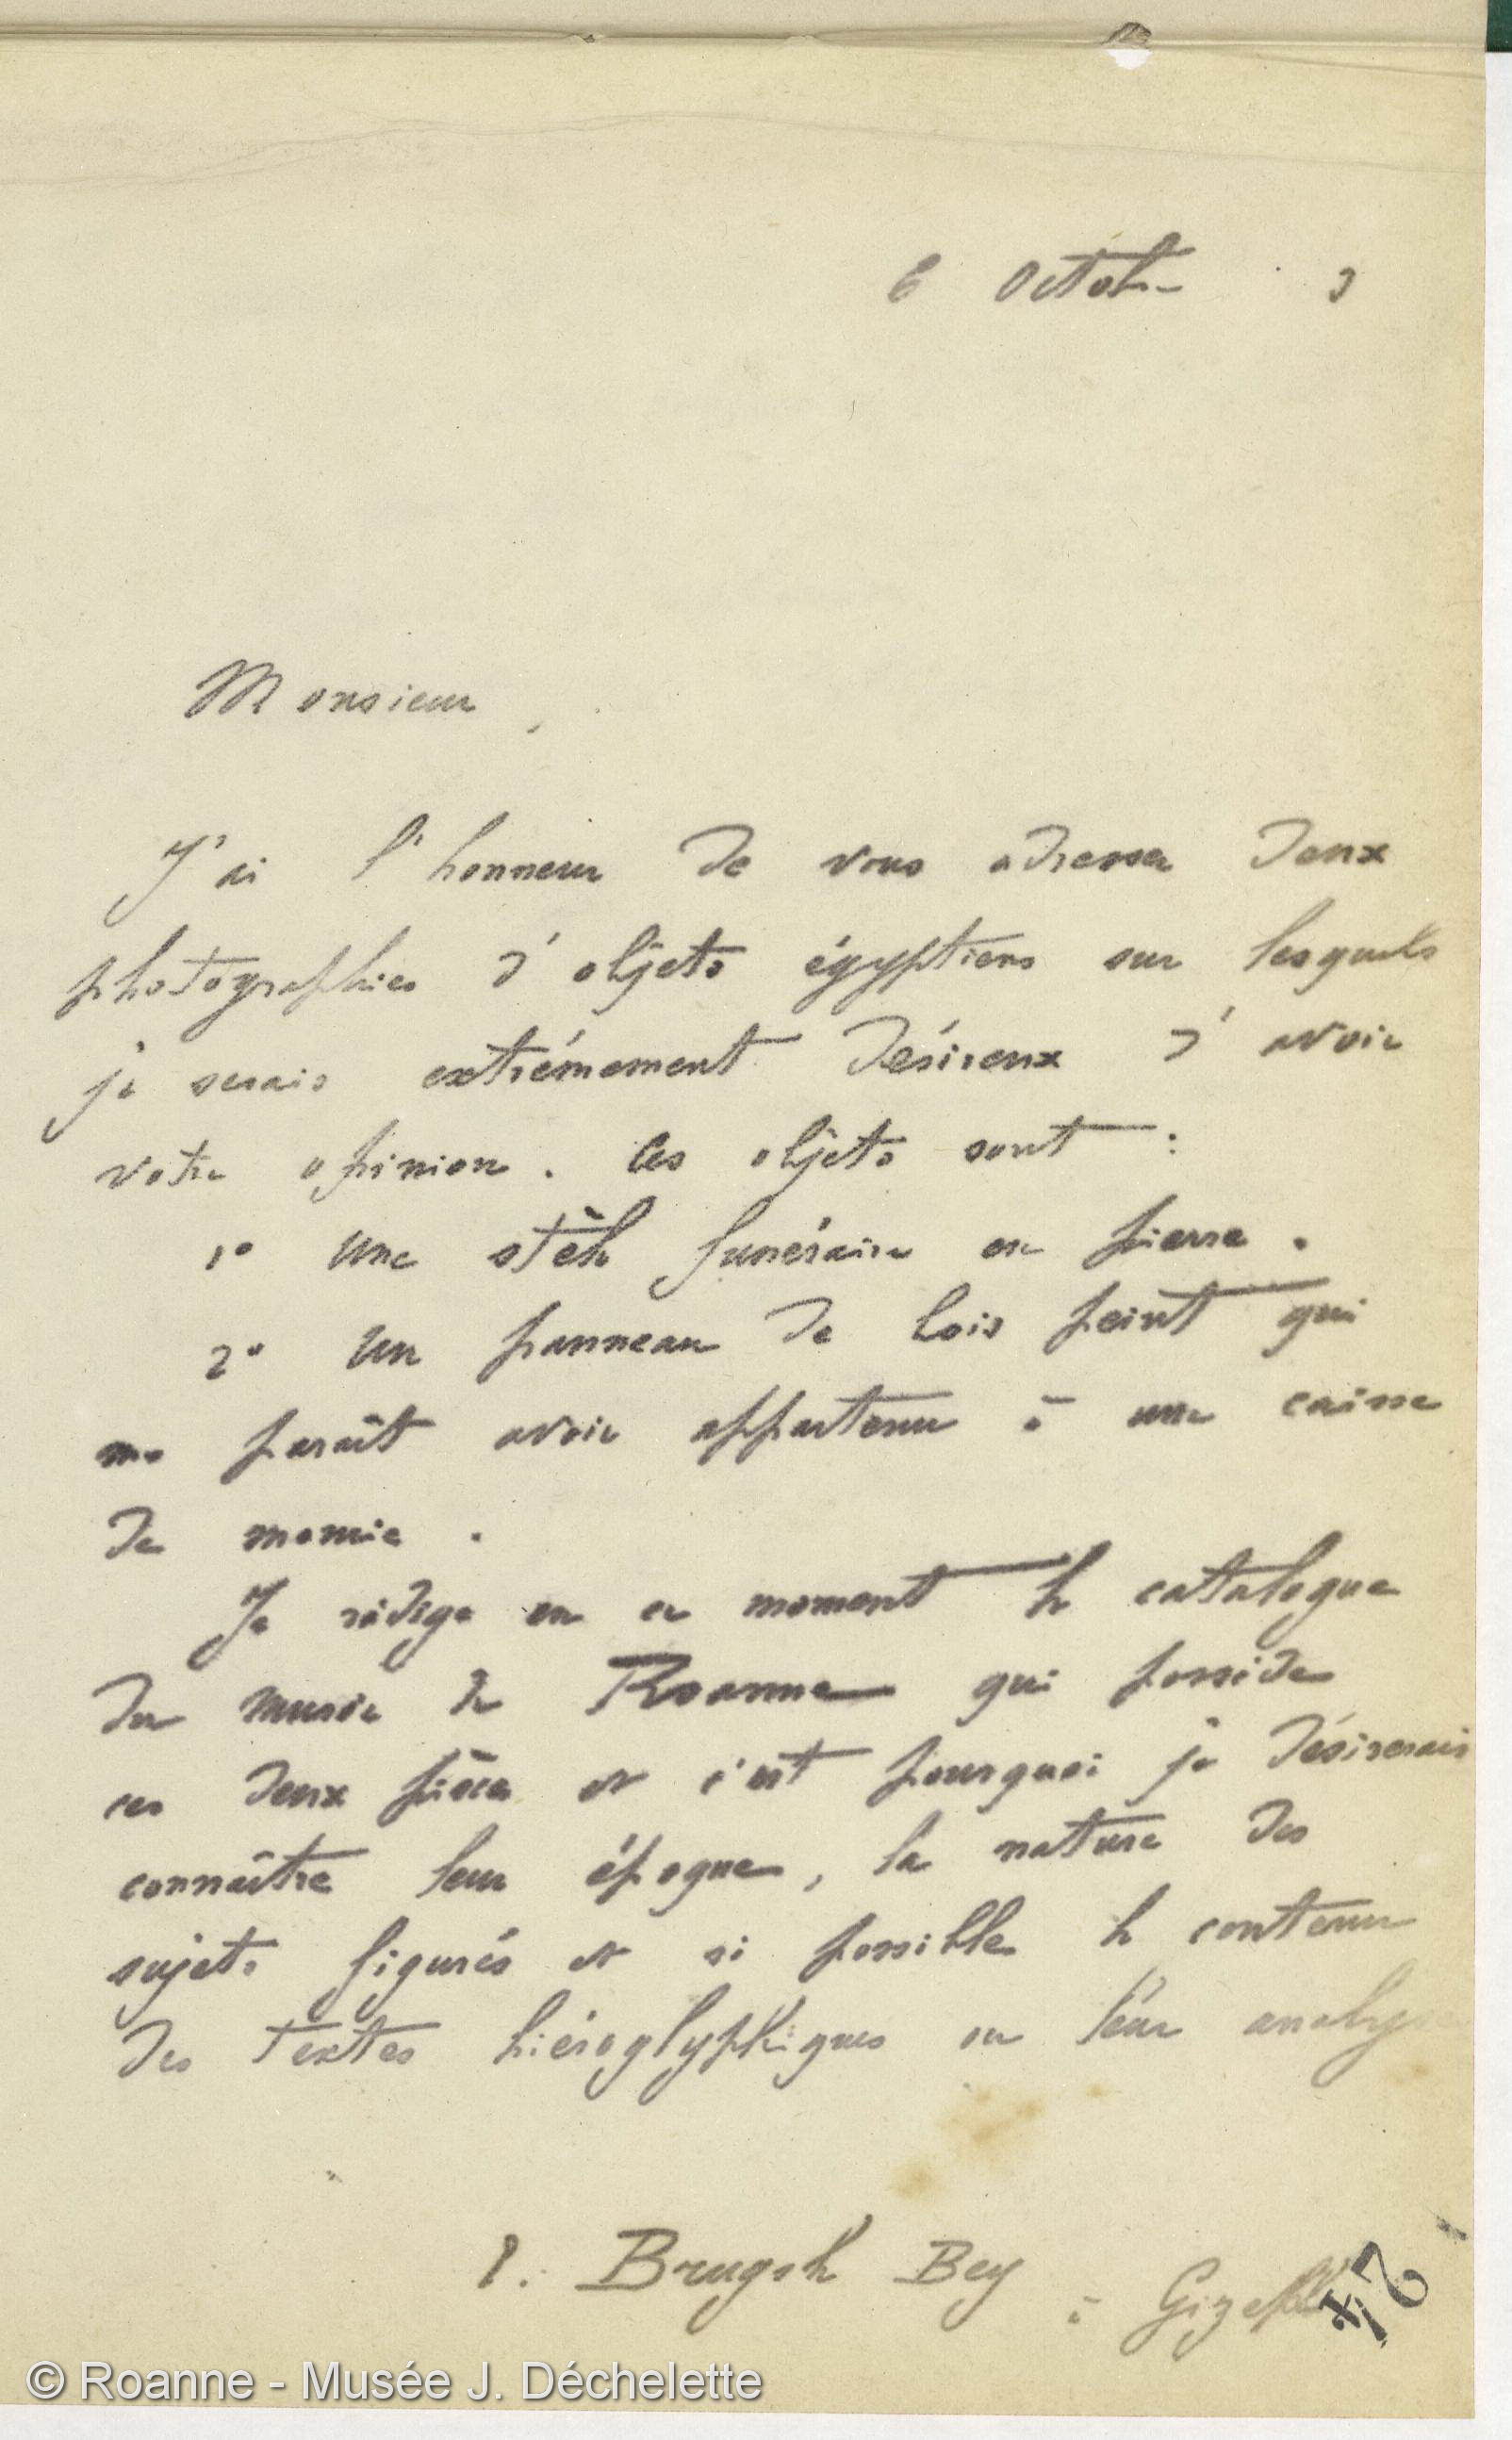 6 Octobre 3
Monsieur,
J'ai l'honneur de vous adresser deux
photographies d'objets égyptiens sur lesquels
je serais extrêmement désireux d'avoir
votre opinion. Ces objets sont :
1° Une stèle funéraire en pierre.
2° Un panneau de bois peint qui
me paraît avoir appartenu à une caisse
de momie.
Je rédige en ce moment le catalogue
du musée de Roanne qui possède
ces deux pièces et c'est pourquoi je désirerais
connaître leur époque, la nature des
sujets figurés et si possible le contenu
des textes hiéroglyphiques ou leur analyse
Brugsch Bey à Gizeh
24
© Roanne - Musée J. Déchelette